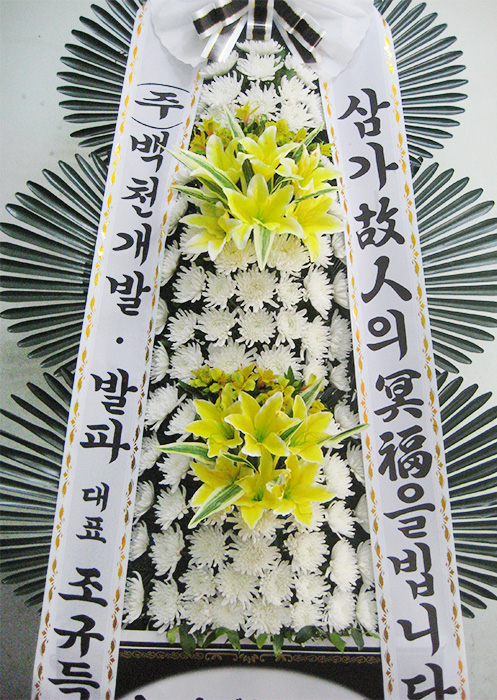 (주)백천개발·발파 대표 조규득
삼가故人의冥福을빕니다